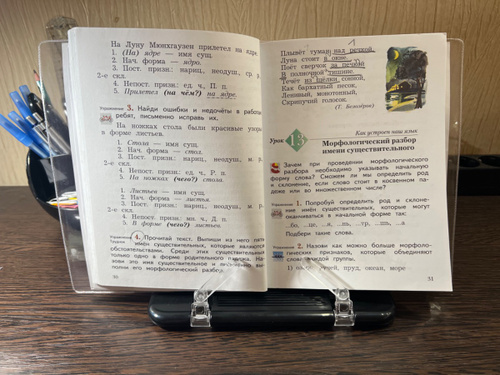 На Луну Мюнхгаузен прилетел на ядре.
1. (На) ядре — имя сущ.
2. Нач. форма — ядро.
3. Пост. призн.: нариц., неодуш., ср. р.,
2-е скл.
4. Непост. призн.: ед. ч., П. п.
5. Прилетел (на чём?) на ядре.
Упражнение 3. Найди ошибки и недочёты в работе
ребят, письменно исправь их.
На ножках стола были красивые узоры
в форме листьев.
1. Стола — имя сущ.
2. Нач. форма — стол.
3. Пост. призн.: нариц., неодуш., м. р.,
2-е скл.
4. Непост. призн.: ед. ч., Р. п.
5. На ножках (чего?) стола.
1. Листьев — имя сущ.
2. Нач. форма — листья.
3. Пост. призн.: нариц., неодуш., м. р.,
2-е скл.
4. Непост. призн.: мн. ч., Д. п.
5. В форме (чего?) листьев.
Упражнение 4. Прочитай текст. Выпиши из него пять
имён существительных, которые являются
обстоятельствами. Среди этих существительных
только одно в форме родительного падежа.
зови это имя существительное и письменно
полни его морфологический разбор.
30
1
Плывёт туман над речкой,
Луна стоит в окне.
Поёт сверчок за печкой
В полночной тишине.
Течёт из щёлки, сонной,
Как бархатный песок,
Ленивый, монотонный,
Скрипучий голосок.
(Т. Белозёров)
Как устроен наш язык
Урок 13
Морфологический разбор
имени существительного
Зачем при проведении морфологического
разбора необходимо указывать начальную
форму слова? Сможем ли мы определить род
и склонение, если слово стоит в косвенном па-
деже или во множественном числе?
Упражнение 1. Попробуй определить род и склоне-
ние имён существительных, которые могут
оканчиваться в начальной форме так:
Подбери такие слова.
Упражнение 2. Назови как можно больше морфоло-
гических признаков, которые объединяют
слова каждой группы.
ручей, пруд, океан, море
31